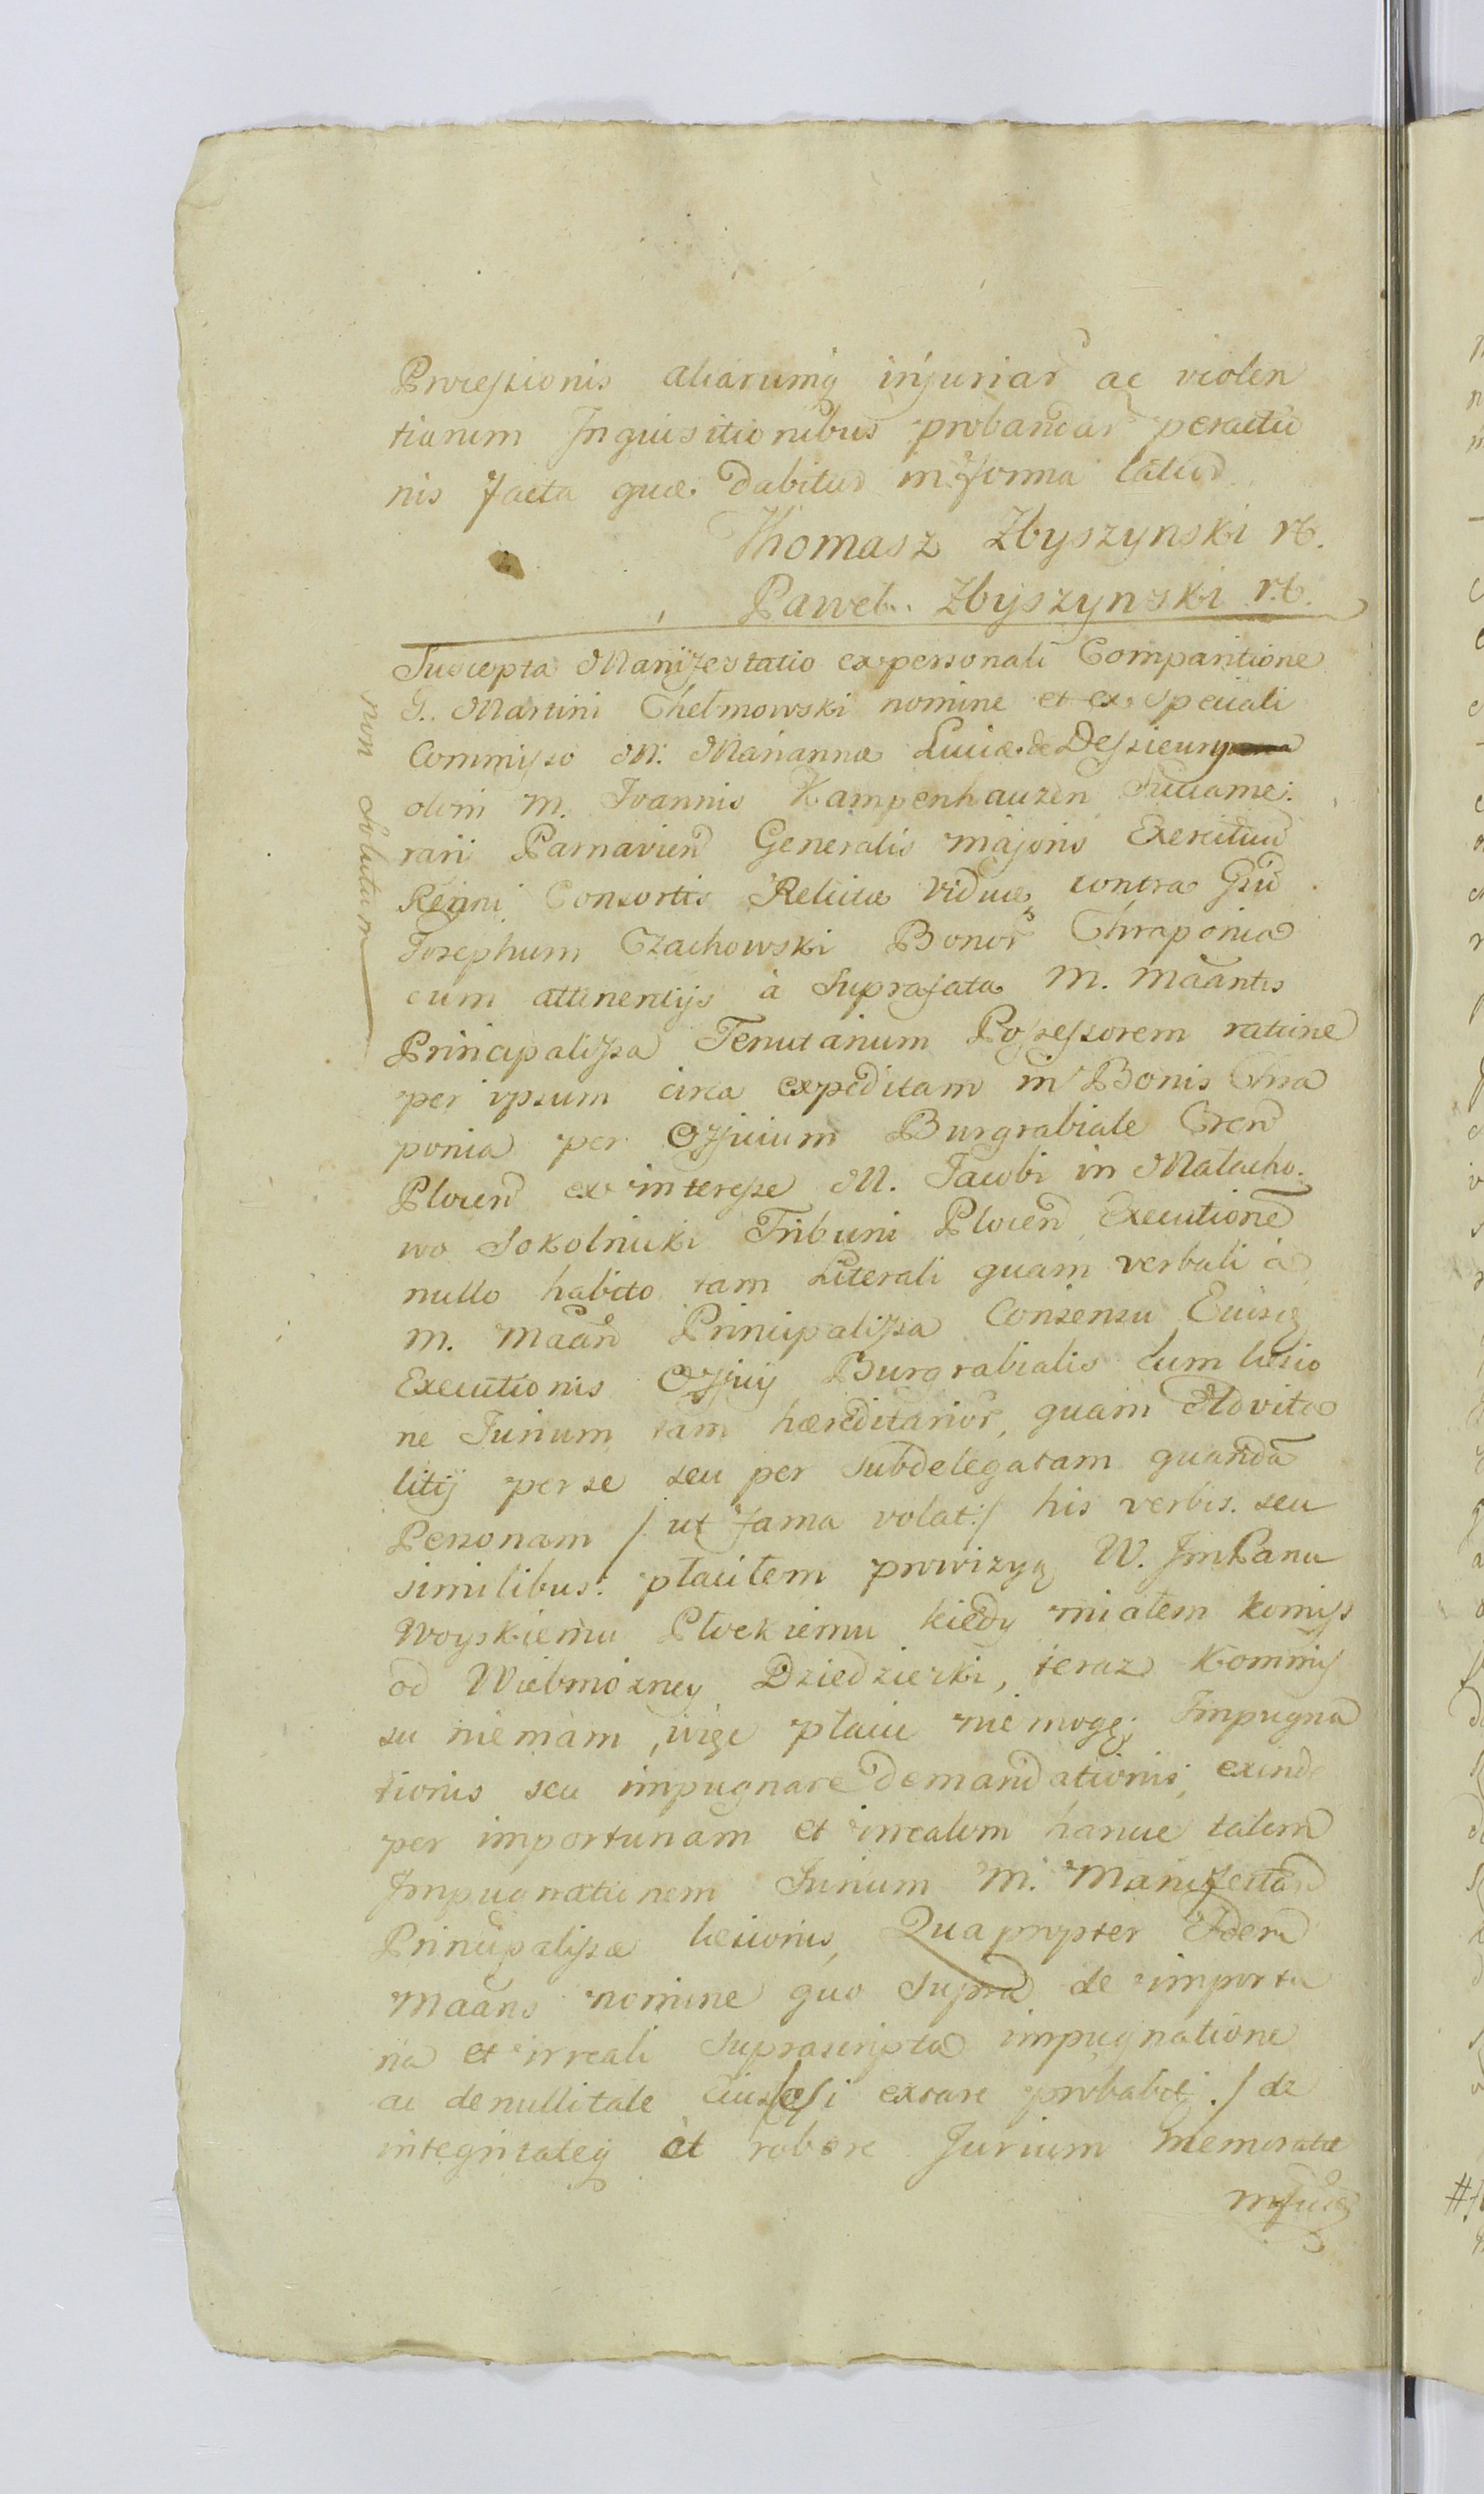 Processionis aliarumq injuriar ac violen
tiarum Inquisitionibus probandar peractio
nis facta quæ dabitur in forma latiori
Thomasz Zbyszynski rb.
Paweł Zbyszynski rb.
Suscepta Manifestatio ex personali Comparitione
G. Martini Chełmowski nomine et ex speciali
Commisso M. Mariannæ Luciæ de Dessieury
olim M. Joannis Kampenhauzen Succame:
rarii Parnavien Generalis majoris Exercituu
Regni Consortis Relictæ viduæ, contra Gsu
Josephum Czachowski Bonor Chraponia
cum attinentijs à suprafata M. Maantis
Principalissa Tenutarium Possessorem ratione
per ipsum circa expeditam in Bonis Chra
ponia per Officium Burgrabiale Cren
Plocen ex interesse M. Jacobi in Małacho:
wo Sokolnicki Tribuni Plocen Executione
nullo habito tam Literali quam verbali à
M. Maan Principalissa Consensu Eiusq
Executionis Officij Burgrabialis Cum læsio
ne Jurium tam hæreditarior, quam Advita
litij per se seu per subdelegatam quanda
Personam /: ut fama volat :/ his verbis seu
similibus: płaciłem prowizyą W. JmPanu
Woyskiemu Płockiemu kiedy miałem komiss
od Wielmożney Dziedziczki, teraz Kommis
su niemam, więc płacic niemogę; Impugna
tionis seu impugnare demandationis, exinde
per importunam et irrealem hancce talem
Impugnationem Jurium M. Manifestan
Principalissæ læsionis, Quapropter Idem
Maans nomine quo supra de importu
na et irreali suprascripta impugnatione
ac de nullitate Eius /: si extare probabit :/ de
integritateq et robore Jurium memoratæ
non Solutum